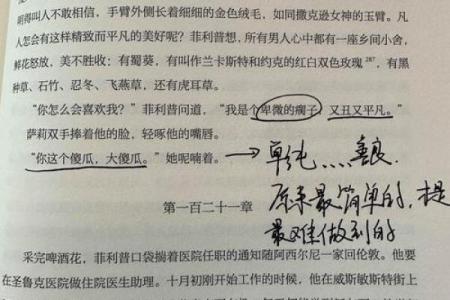 明得叫人不敢相信，手臂外侧长着细细的金色绒毛，如同撒克逊女神的玉臂。凡
人怎会有这样精致而平凡的美好呢？菲利普想，所有男人心中都有一座乡间小舍，
鲜花怒放，美不胜收：有蜀葵，有叫作兰卡斯特和约克的红白双色玫瑰287，有黑
种草、石竹、忍冬、飞燕草，还有虎耳草。
“你怎么会喜欢我？”菲利普问道，“我是个卑微的瘸子，又丑又平凡。”
萨莉双手捧着他的脸，轻啄他的嘴唇。
“你这个傻瓜，大傻瓜。”她呢喃着。
→ 单纯....善良.
原来最简单的,
最难做到的
第一百二十一章
采完啤酒花，菲利普口袋揣着医院任职的通知随阿西尔尼一家回伦敦。他要
在圣鲁克医院做住院医生助理。十月初刚开始工作的时候，他在威斯敏斯特街上